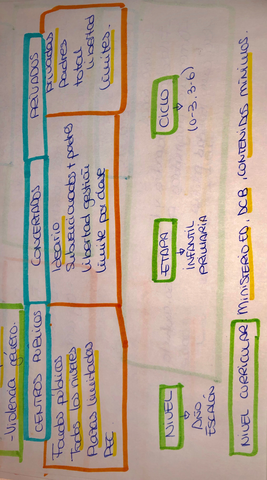 -Violencia género.
CENTROS PÚBLICOS
Fondos públicos
Todos los niveles
Plazas limitadas
PEC
CONCERTADOS
Ideario
Subvencionados + partes
Libertad gestión
Límite por clase
PRIVADOS
Privados
Padres
total
libertad
límites.
NIVEL
↓
AÑO
ESCALÓN.
ETAPA
↓
INFANTIL
PRIMARIA
CICLO
↓
(0-3, 3-6)
NIVEL CURRICULAR MINISTERIO ED, DCB, CONTENIDOS MÍNIMOS.